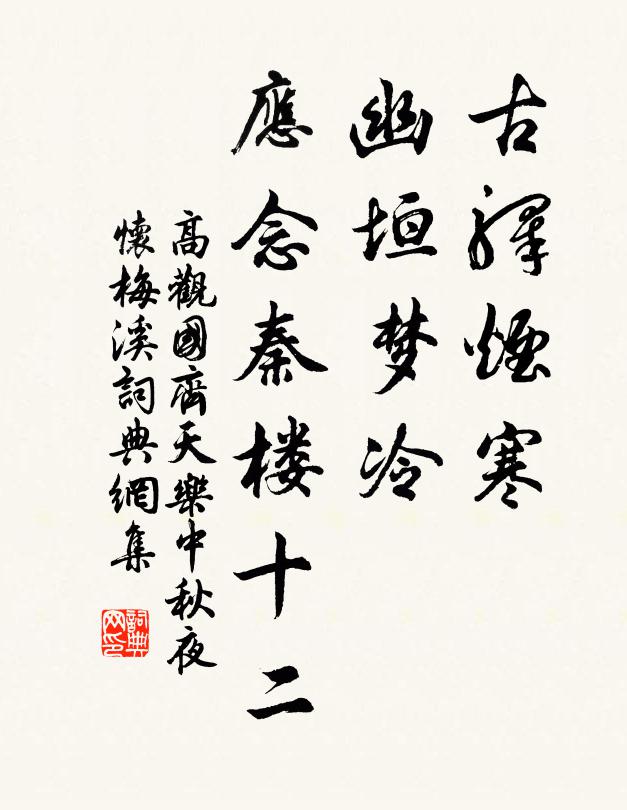 古驛煙寒
幽垣梦冷
應念秦楼十二
高觀國齊天樂中秋夜
懷梅溪詞典網集
詞典
网印